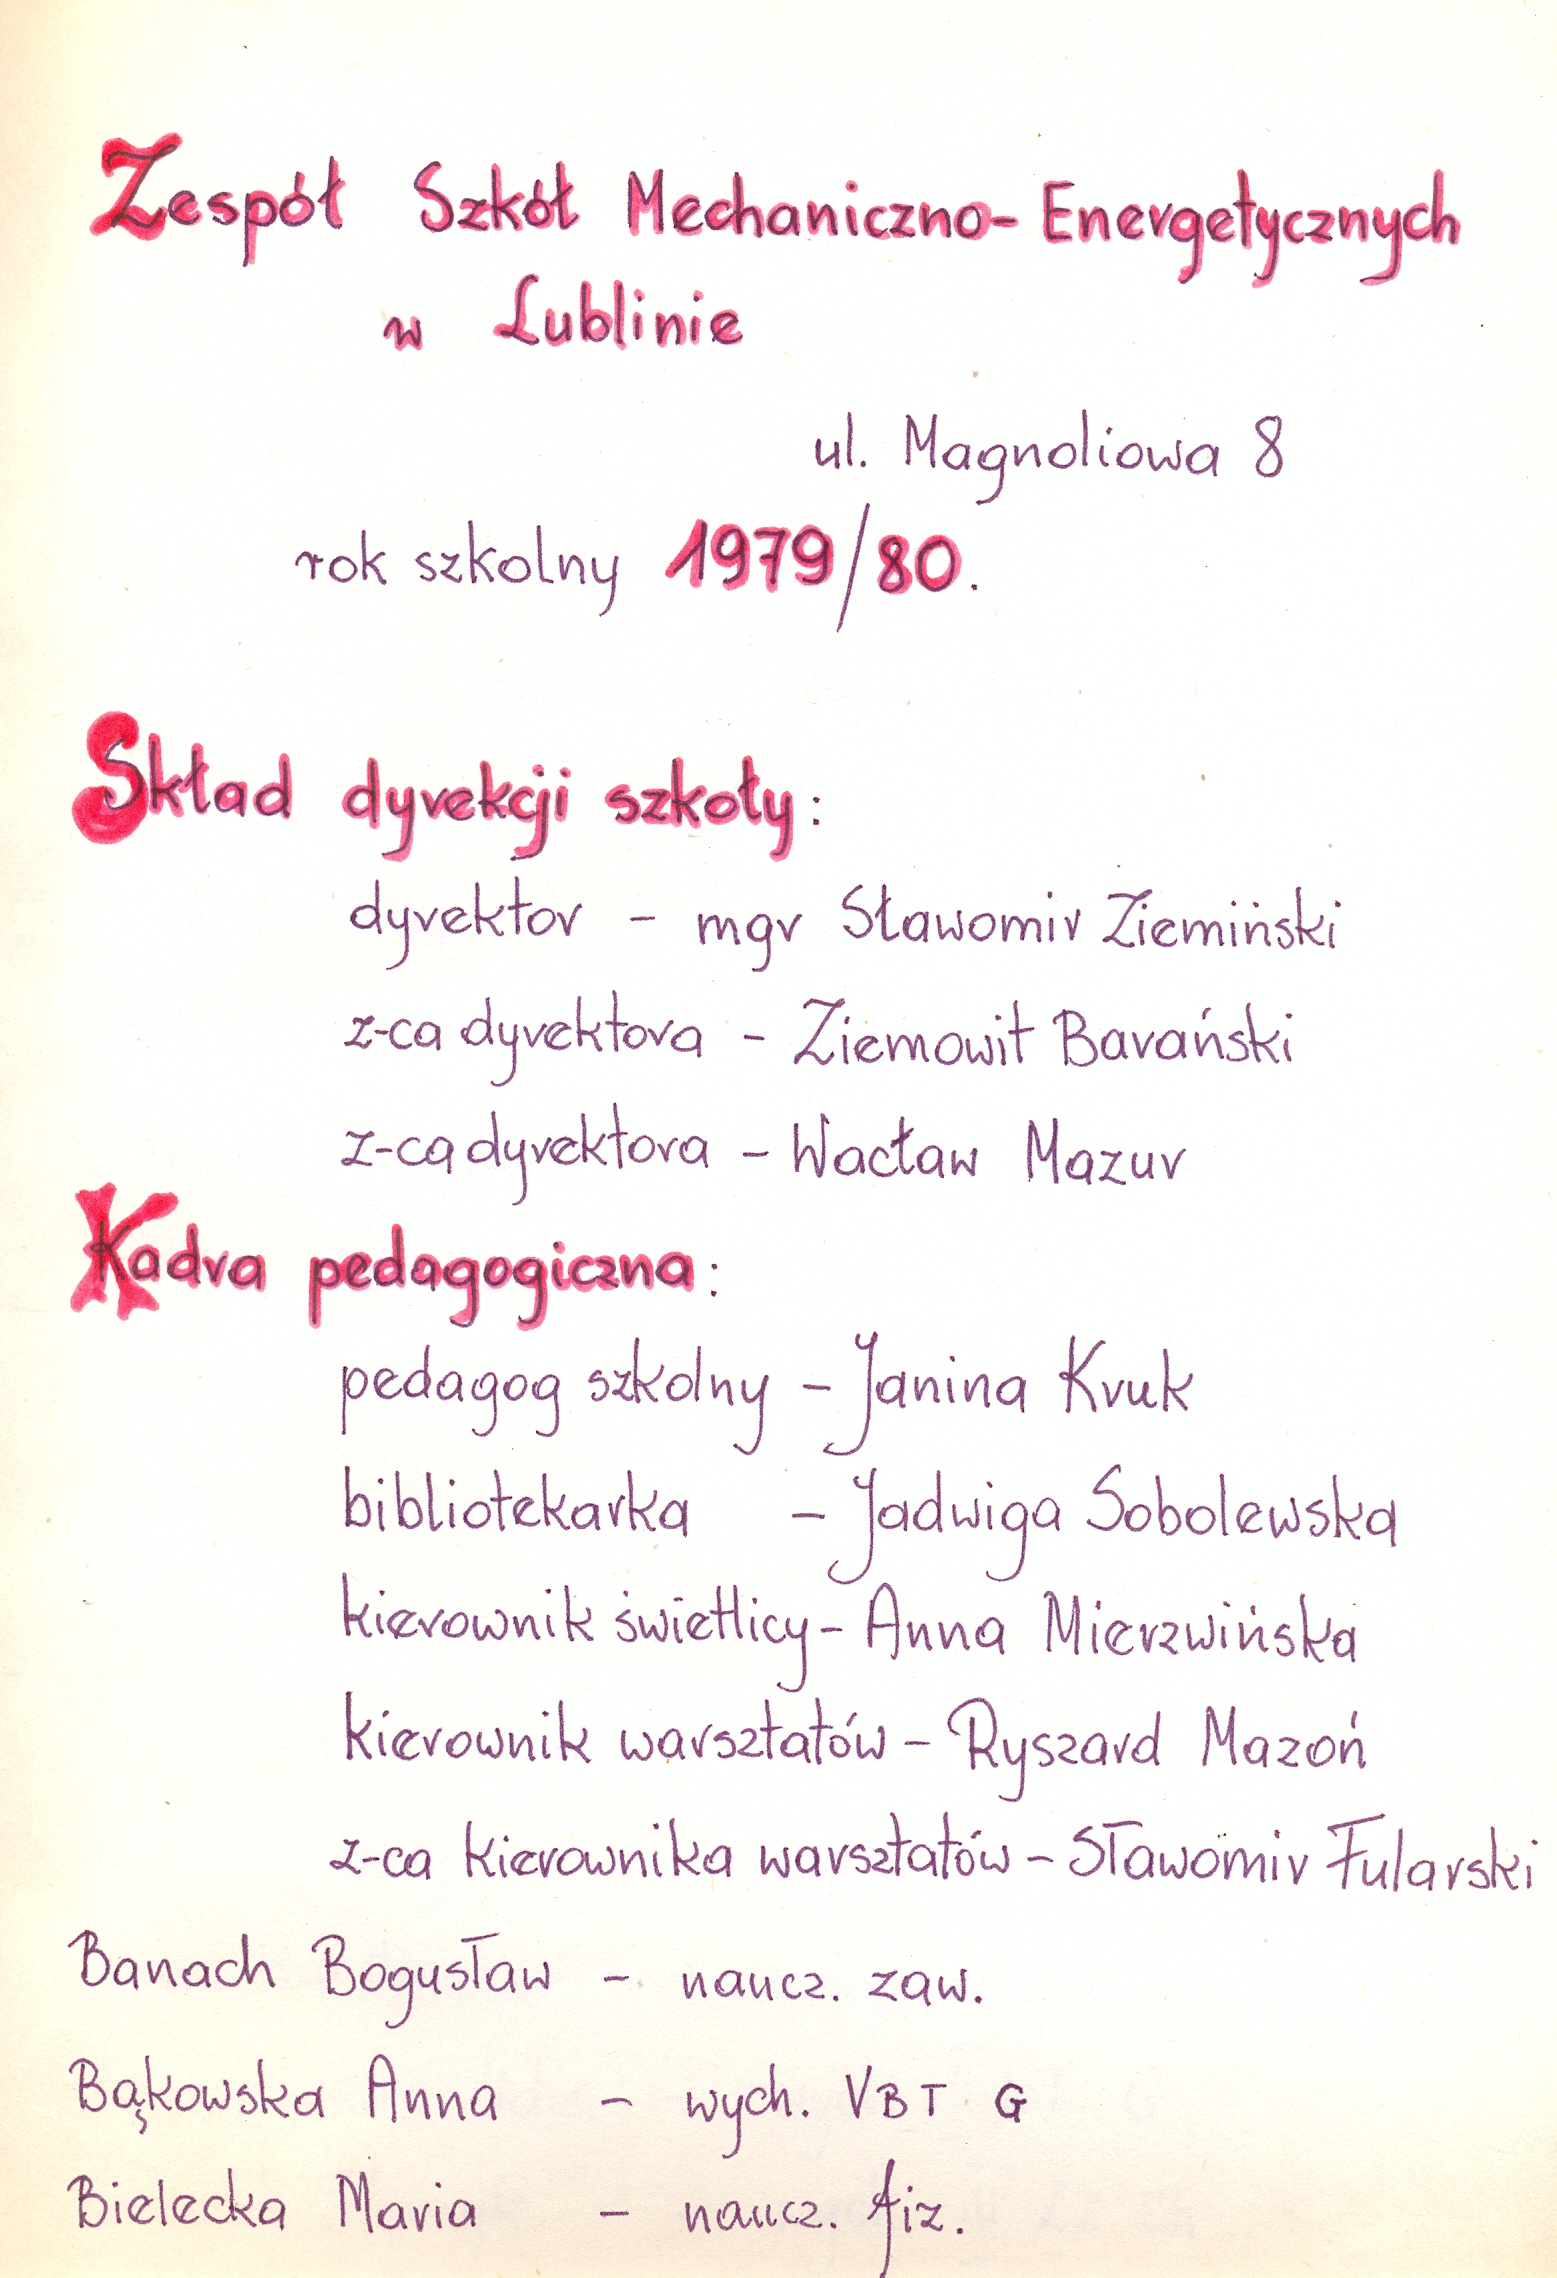 Zespół Szkół Mechaniczno-Energetycznych
w Lublinie
ul. Magnoliowa 8
rok szkolny 1979/80.
Skład dyrekcji szkoły:
dyrektor - mgr Sławomir Ziemiński
z-ca dyrektora - Ziemowit Barański
z-ca dyrektora - Wacław Mazur
Kadra pedagogiczna:
pedagog szkolny - Janina Kruk
bibliotekarka - Jadwiga Sobolewska
kierownik świetlicy - Anna Mierzwińska
kierownik warsztatów - Ryszard Mazoń
z-ca kierownika warsztatów - Sławomir Fularski
Banach Bogusław - naucz. zaw.
Bąkowska Anna - wych. VBT G
Bielecka Maria - naucz. fiz.